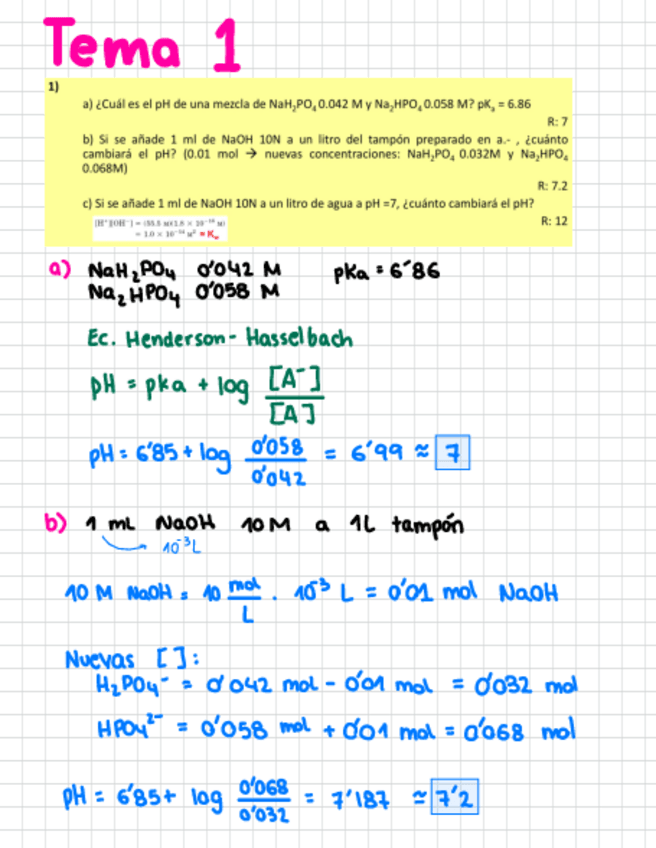 Tema 1
1)
a) ¿Cuál es el pH de una mezcla de NaH₂PO₄ 0.042 M y Na₂HPO₄ 0.058 M? pKₐ = 6.86
R: 7
b) Si se añade 1 ml de NaOH 10N a un litro del tampón preparado en a.- , ¿cuánto
cambiará el pH? (0.01 mol → nuevas concentraciones: NaH₂PO₄ 0.032M y Na₂HPO₄
0.068M)
R: 7.2
c) Si se añade 1 ml de NaOH 10N a un litro de agua a pH =7, ¿cuánto cambiará el pH?
[H⁺][OH⁻] = (55.5 M)(1.8 × 10⁻¹⁶ M)
= 1.0 × 10⁻¹⁴ M² = Kw
R: 12
a) NaH₂PO₄ 0'042 M pKa = 6'86
Na₂HPO₄ 0'058 M
Ec. Henderson-Hasselbach
pH = pka + log [A⁻] / [A]
pH = 6'85 + log 0'058 / 0'042 = 6'99 ≈ 7
b) 1 mL NaOH 10M a 1L tampón
10⁻³L
10 M NaOH = 10 mol / L · 10⁻³ L = 0'01 mol NaOH
Nuevas [ ]:
H₂PO₄⁻ = 0'042 mol - 0'01 mol = 0'032 mol
HPO₄²⁻ = 0'058 mol + 0'01 mol = 0'068 mol
pH = 6'85 + log 0'068 / 0'032 = 7'187 ≈ 7'2